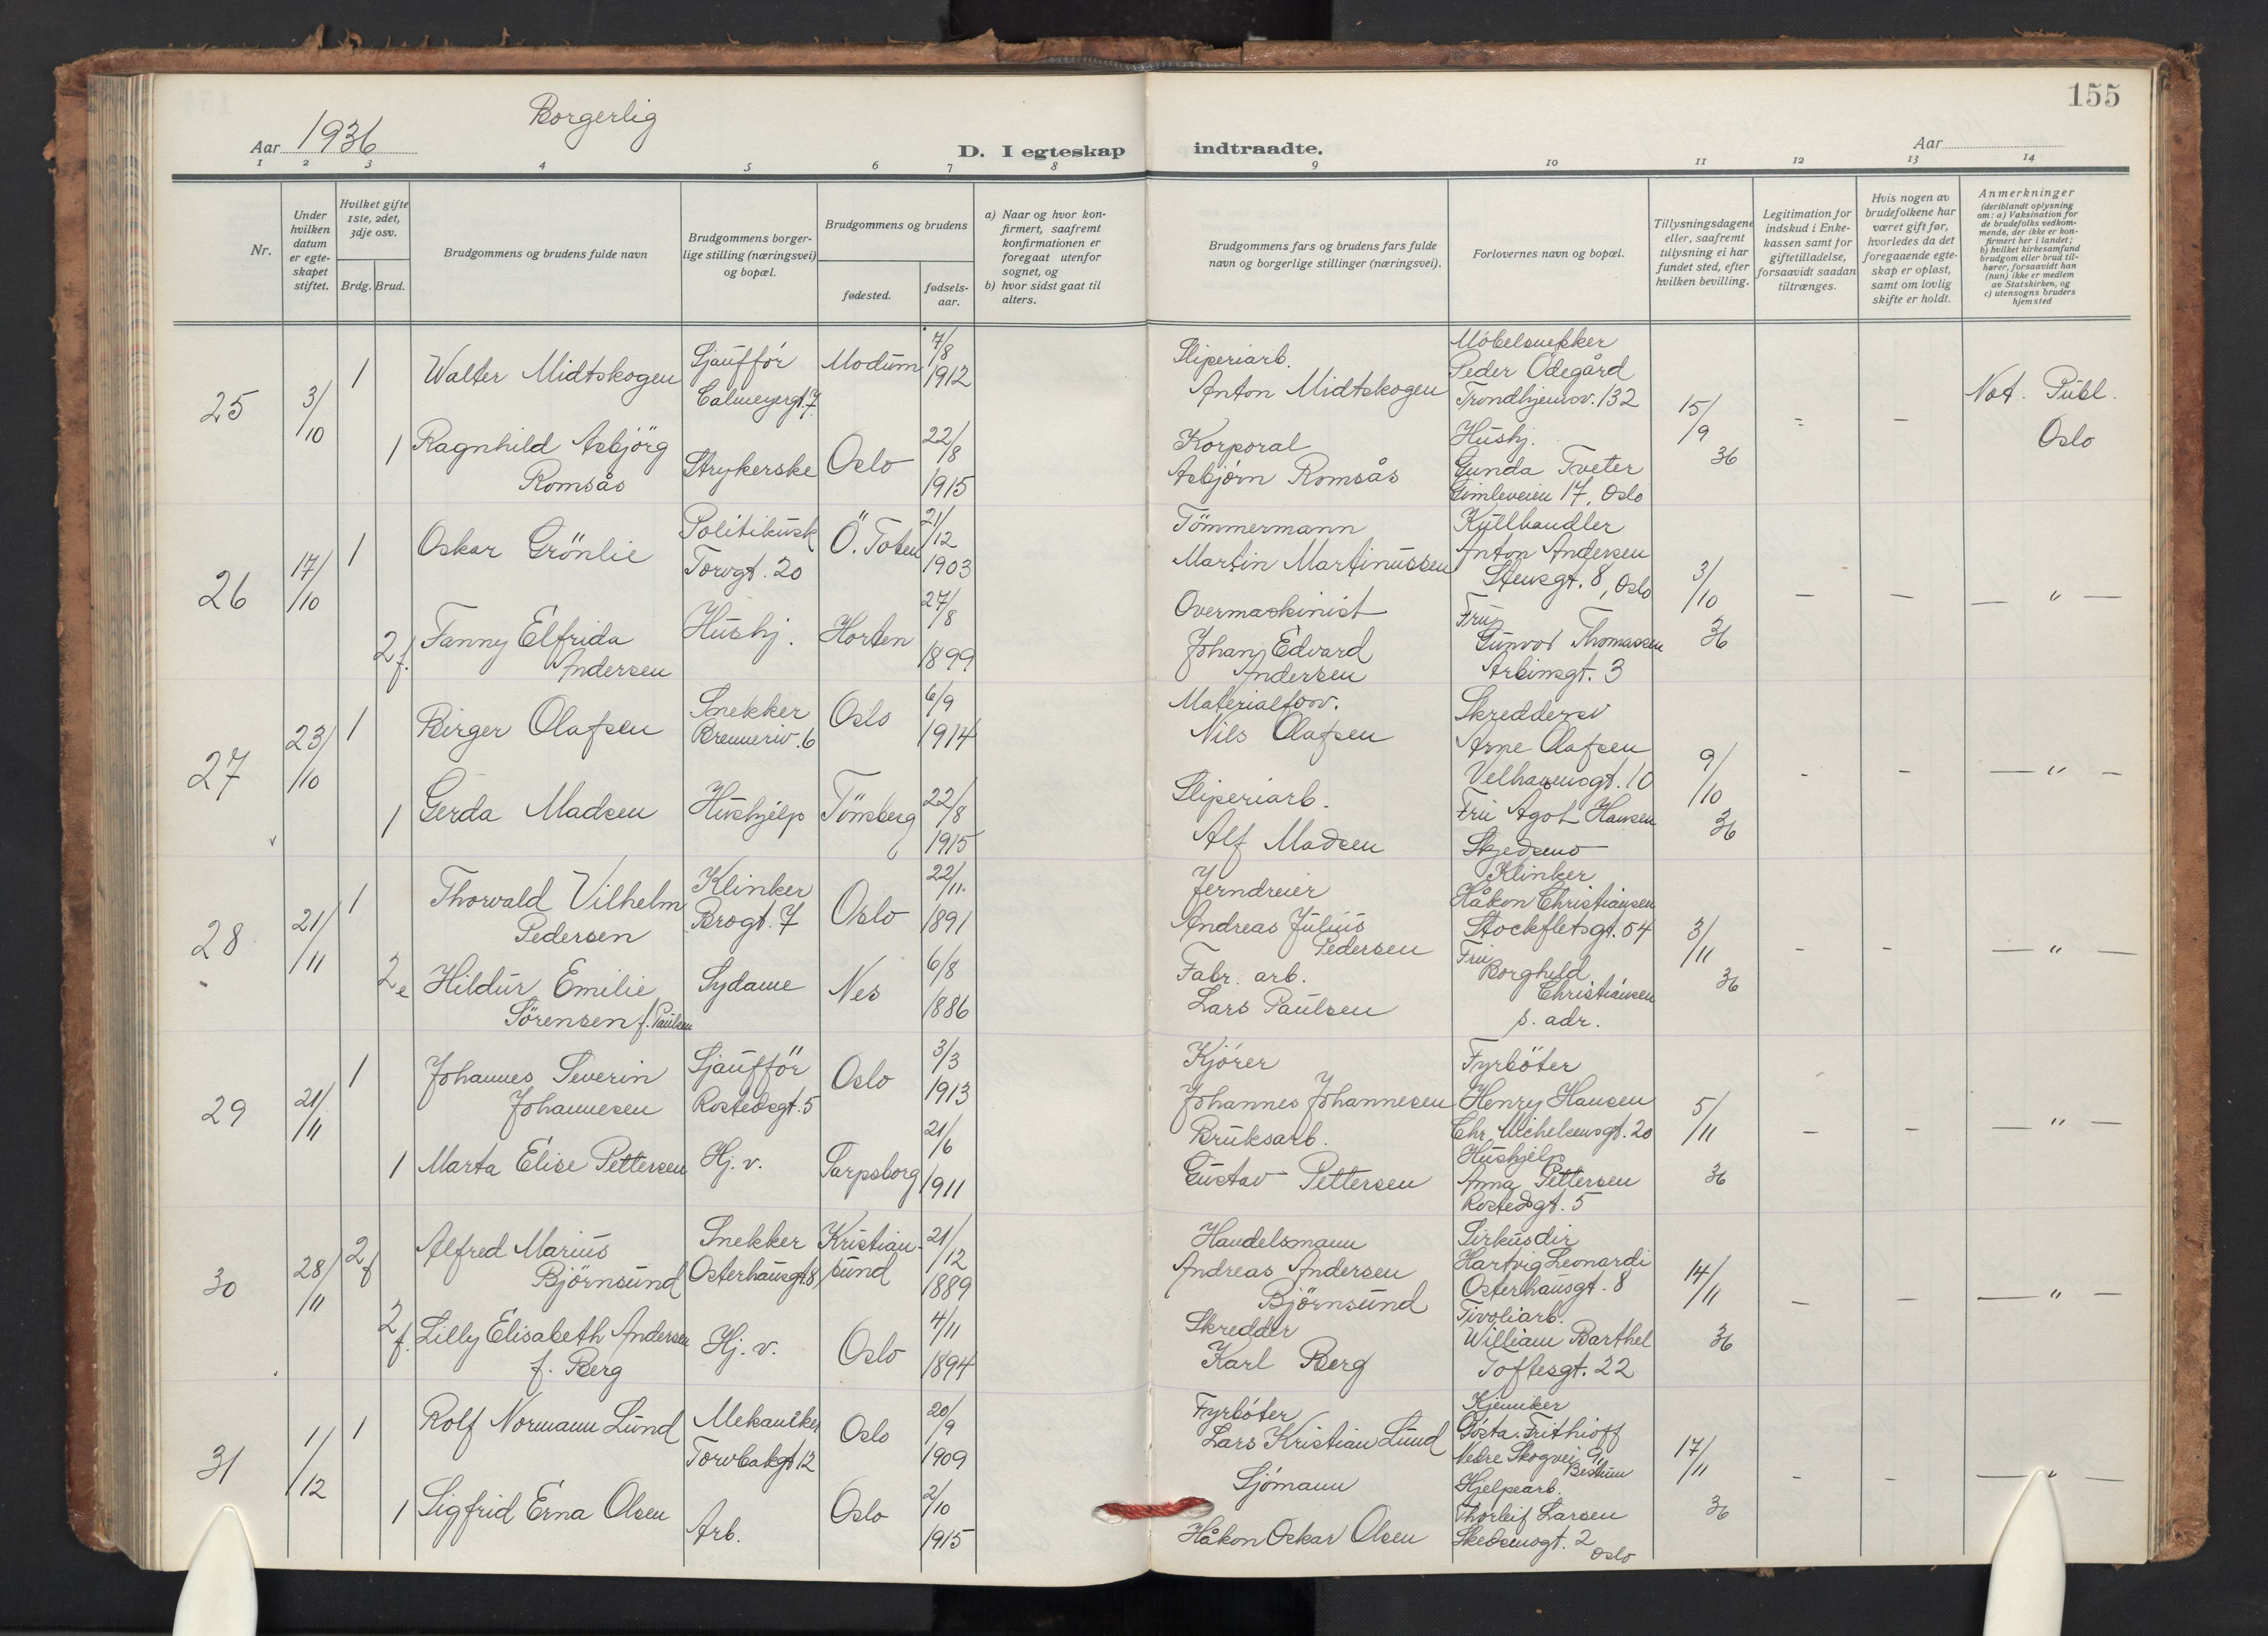 155
Borgerlig
Aar 1936
D. I egteskap indtraadte.
Aar
1 2 3 4 5 6 7 8 9 10 11 12 13 14
Nr.
Under hvilken datum er egte-skapet stiftet.
Hvilket gifte 1ste, 2det, 3dje osv.
Brdg. Brud.
Brudgommens og brudens fulde navn
Brudgommens borger-lige stilling (næringsvei) og bopæl.
Brudgommens og brudens
fødested.
fødsels-aar.
a) Naar og hvor kon-firmert, saafremt konfirmationen er foregaat utenfor sognet, og
b) hvor sidst gaat til alters.
Brudgommens fars og brudens fars fulde navn og borgerlige stillinger (næringsvei).
Forlovernes navn og bopæl.
Tillysningsdagene eller, saafremt tillysning ei har fundet sted, efter hvilken bevilling.
Legitimation for indskud i Enke-kassen samt for giftetilladelse, forsaavidt saadan tiltrænges.
Hvis nogen av brudefolkene har været gift før, hvorledes da det foregaaende egte-skap er opløst, samt om lovlig skifte er holdt.
Anmerkninger (deriblandt oplysning om: a) Vaksination for de brudefolks vedkom-mende, der ikke er kon-firmert her i landet; b) hvilket kirkesamfund brudgom eller brud til-hører, forsaavidt han (hun) ikke er medlem av Statskirken, og c) utensogns bruders hjemsted
25
3/10
1
Walter Midtskogen
Sjauffør
Calmeyergt. 7
Modum
7/8 1912
Sliperiarb.
Anton Midtskogen
Møbelsnekker
Peder Ødegård
Trondhjemsv. 132
15/9 36
Not. Publ.
Oslo
1
Ragnhild Asbjörg
Romsås
Strykerske
Oslo
22/8 1915
Korporal
Asbjørn Romsås
Hushj.
Gunda Tveter
Gimleveien 17, Oslo
26
17/10
1
Oskar Grönlie
Politikusk
Torvgt. 20
Ö. Toten
21/12 1903
Tömmermann
Martin Martinussen
Kullhandler
Anton Andersen
Stensgt. 8, Oslo
3/10 36
— — — " —
2 f.
Fanny Elfrida
Andersen
Hushj.
Horten
27/8 1899
Overmaskinist
Johan Edvard
Andersen
Fru
Gunvor Thomassen
Arbinsgt. 3
27
23/10
1
Birger Olafsen
Snekker
Brenneriv. 6
Oslo
6/9 1914
Materialforv.
Nils Olafsen
Skreddersv
Arne Olafsen
Velhavensgt. 10
9/10 36
- - — " —
1
Gerda Madsen
Hushjelp
Tönsberg
22/8 1915
Sliperiarb.
Alf Madsen
Fru Agot Hansen
Skjedsmo
28
21/11
1
Thorvald Vilhelm
Pedersen
Klinker
Brogt. 7
Oslo
22/11 1891
Jerndreier
Andreas Julius
Pedersen
Klinker
Håkon Christiansen
Stockfletsgt. 54
3/11 36
- - — " —
2 e
Hildur Emilie
Sörensen f. Paulsen
Sydame
Nes
6/8 1886
Fabr. arb.
Lars Paulsen
Fru
Borghild
Christiansen
s. adr.
29
21/11
1
Johannes Severin
Johannesen
Sjaufför
Rostedsgt. 5
Oslo
3/3 1913
Kjører
Johannes Johannesen
Fyrböter
Henry Hansen
Chr. Michelsensgt. 20
5/11 36
— - — " —
1
Marta Elise Pettersen
Hj. v.
Sarpsborg
21/6 1911
Bruksarb.
Gustav Pettersen
Hushjelp
Anna Pettersen
Rostedsgt. 5
30
28/11
2 f
Alfred Marius
Björnsund
Snekker
Osterhausgt. 8
Kristian-
sund
21/12 1889
Handelsmann
Andreas Andersen
Björnsund
Sirkusdir
Hartvig Leonardi
Osterhausgt. 8
14/11 36
— — — " —
2 f.
Lilly Elisabeth Andersen
f. Berg
Hj. v.
Oslo
4/11 1894
Skredder
Karl Berg
Tivoliarb.
William Barthel
Toftesgt. 22
31
1/12
1
Rolf Normann Lund
Mekaniker
Torvbakgt 12
Oslo
20/9 1909
Fyrbøter
Lars Kristian Lund
Kjemiker
Gösta Frithioff
Nedre Skogvei 9,
Bestum
17/11 36
- - — " —
1
Sigfrid Erna Olsen
Arb.
Oslo
2/10 1915
Sjømann
Håkon Oskar Olsen
Hjelpearb.
Thorleif Larsen
Skedsmogt. 2
Oslo